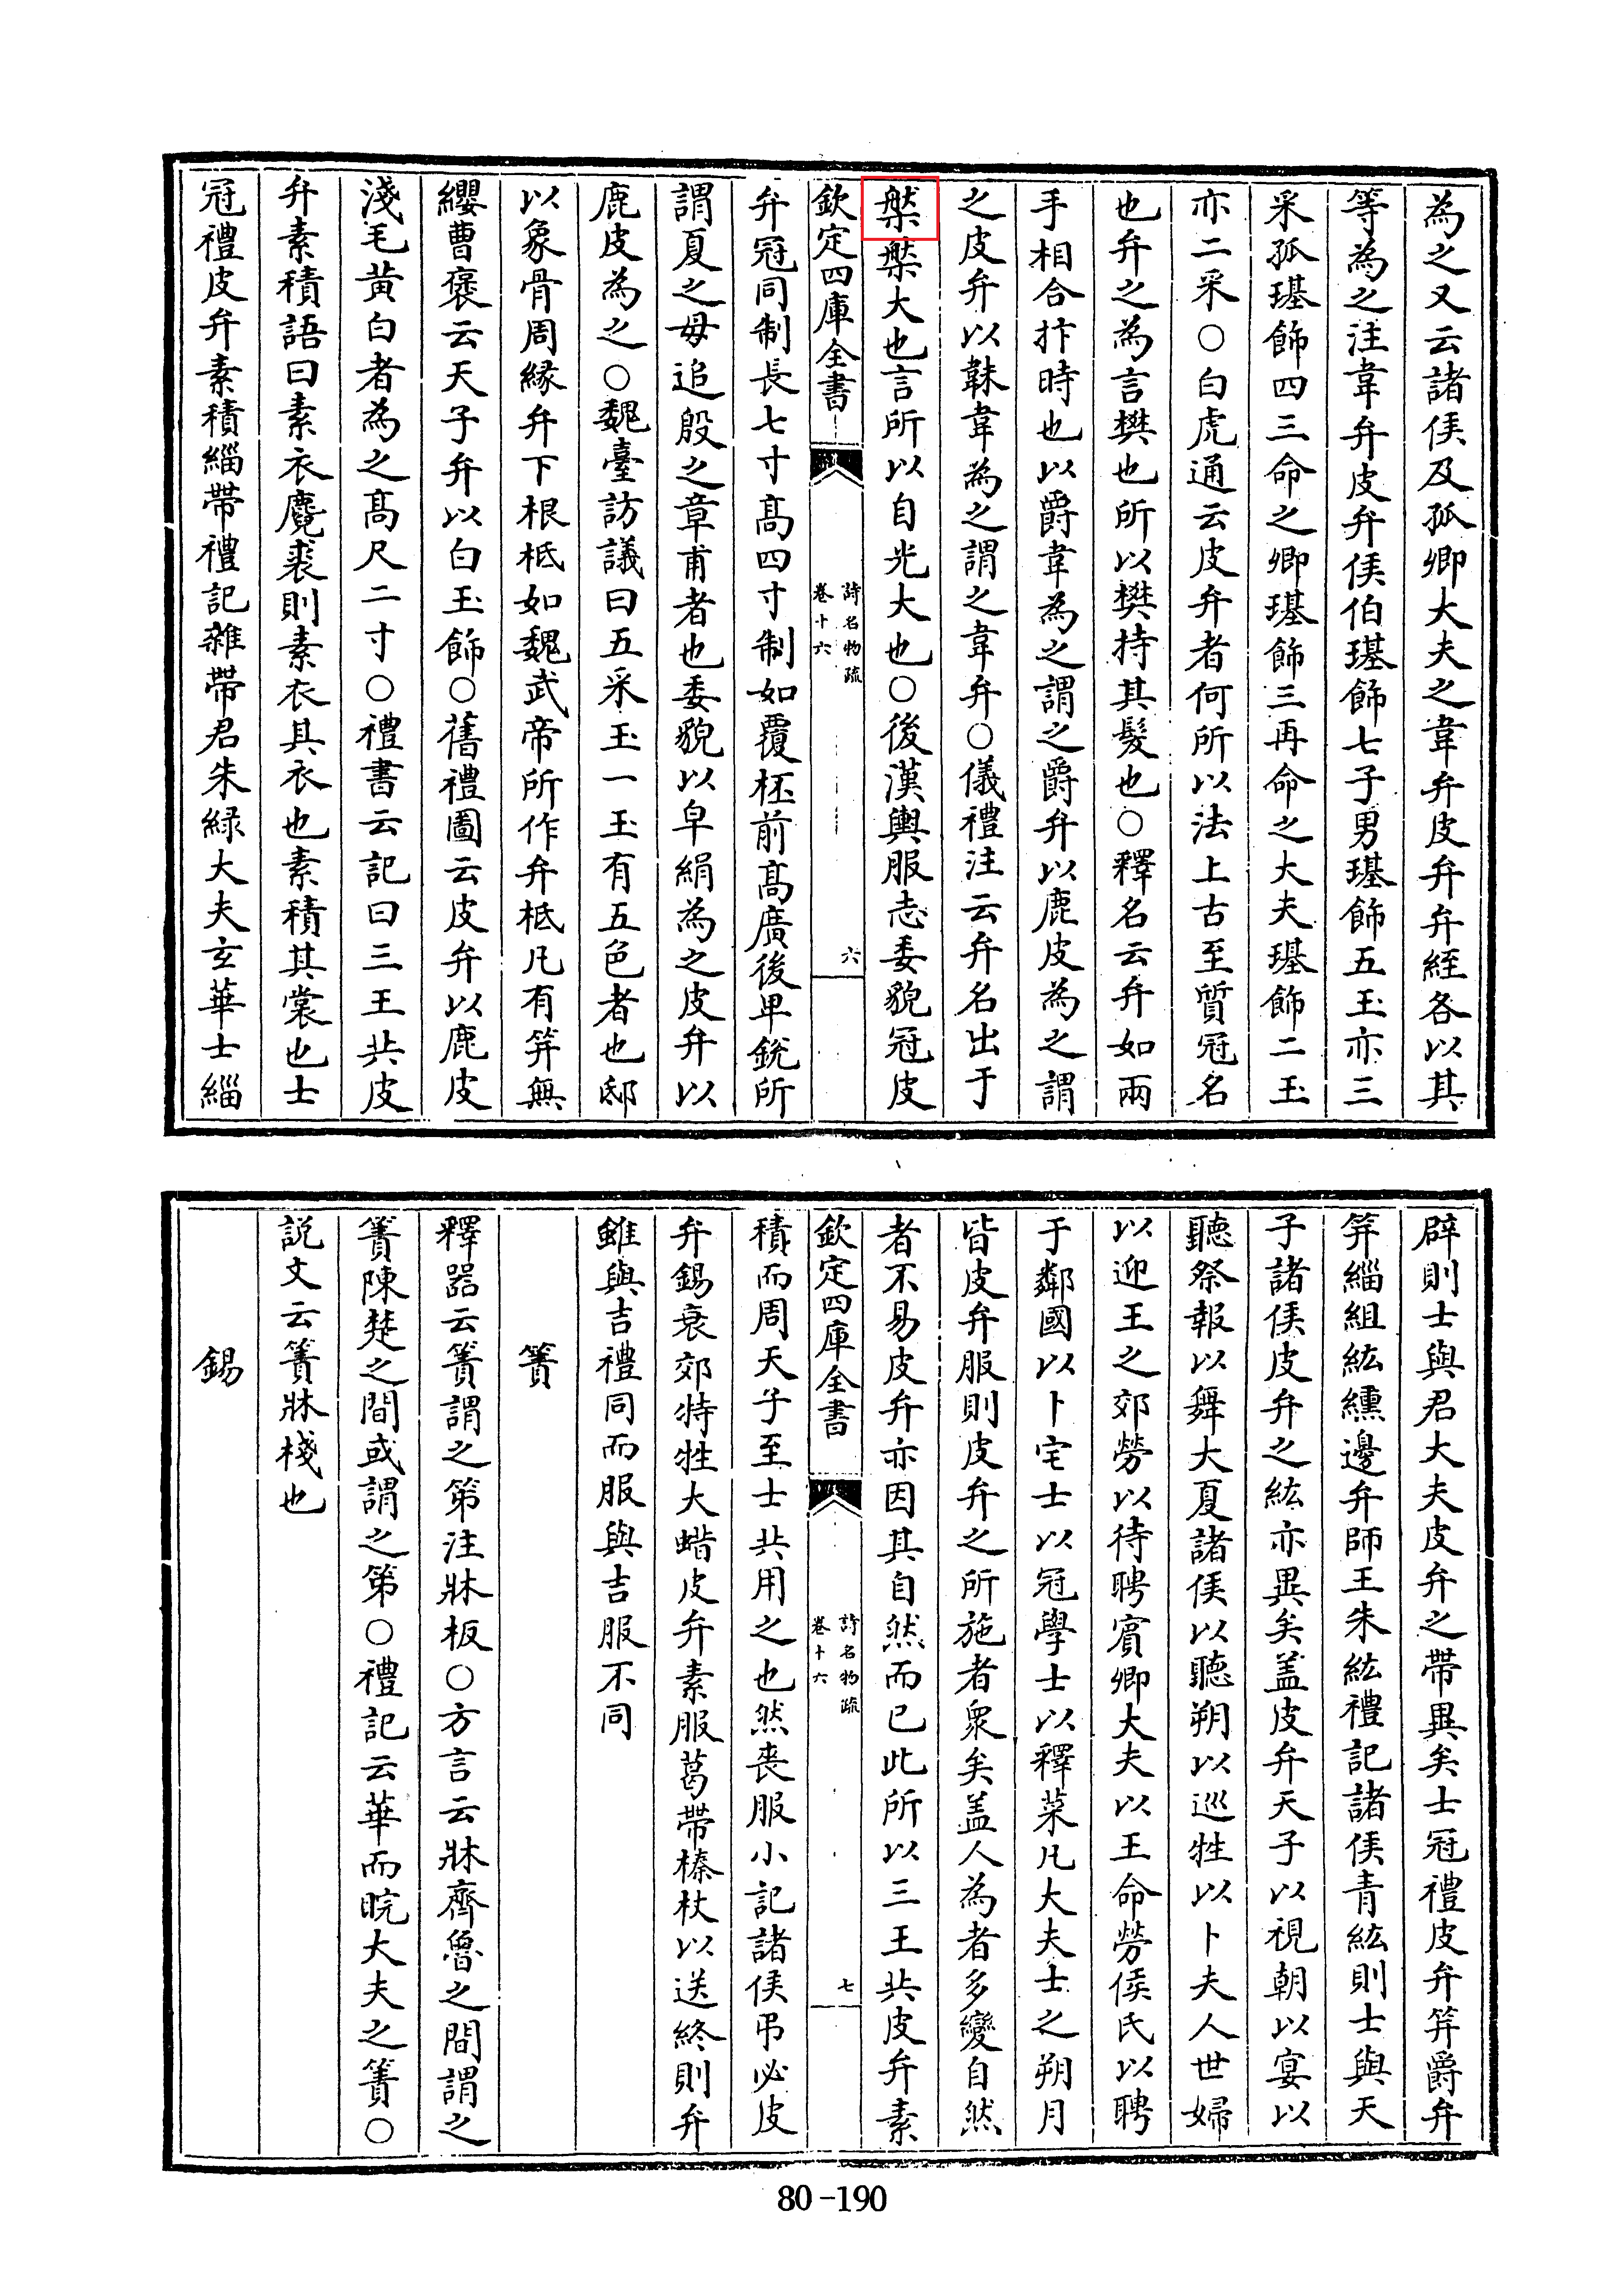 為之又云諸侯及孤卿大夫之韋弁皮弁弁絰各以其
等為之注韋弁皮弁侯伯璂飾七子男璂飾五玉亦三
采孤璂飾四三命之卿璂飾三再命之大夫璂飾二玉
亦二采○白虎通云皮弁者何所以法上古至質冠名
也弁之為言樊也所以樊持其髮也○釋名云弁如兩
手相合抃時也以爵韋為之謂之爵弁以鹿皮為之謂
之皮弁以韎韋為之謂之韋弁○儀禮注云弁名出于
槃槃大也言所以自光大也○後漢輿服志委貌冠皮
欽定四庫全書
詩名物疏
卷十六
六
弁冠同制長七寸髙四寸制如覆杯前髙廣後卑銳所
謂夏之毋追殷之章甫者也委貌以皁絹為之皮弁以
鹿皮為之○魏臺訪議曰五采玉一玉有五色者也邸
以象骨周緣弁下根柢如魏武帝所作弁柢凡有笄無
纓曹褒云天子弁以白玉飾○舊禮圖云皮弁以鹿皮
淺毛黄白者為之髙尺二寸○禮書云記曰三王共皮
弁素積語曰素衣麑裘則素衣其衣也素積其裳也士
冠禮皮弁素積緇帶禮記雜帶君朱緑大夫玄華士緇
辟則士與君大夫皮弁之帶異矣士冠禮皮弁笄爵弁
笄緇組紘纁邊弁師王朱紘禮記諸侯青紘則士與天
子諸侯皮弁之紘亦異矣盖皮弁天子以視朝以宴以
聽祭報以舞大夏諸侯以聽朔以巡牲以卜夫人世婦
以迎王之郊勞以待聘賓卿大夫以王命勞侯氏以聘
于鄰國以卜宅士以冠學士以釋菜凡大夫士之朔月
皆皮弁服則皮弁之所施者衆矣盖人為者多變自然
者不易皮弁亦因其自然而已此所以三王共皮弁素
欽定四庫全書
詩名物疏
卷十六
七
積而周天子至士共用之也然喪服小記諸侯弔必皮
弁錫衰郊特牲大蜡皮弁素服葛帶榛杖以送終則弁
雖與吉禮同而服與吉服不同
簀
釋器云簀謂之笫注牀板○方言云牀齊魯之間謂之
簀陳楚之間或謂之笫○禮記云華而睆大夫之簀○
説文云簀牀棧也
錫
80-190